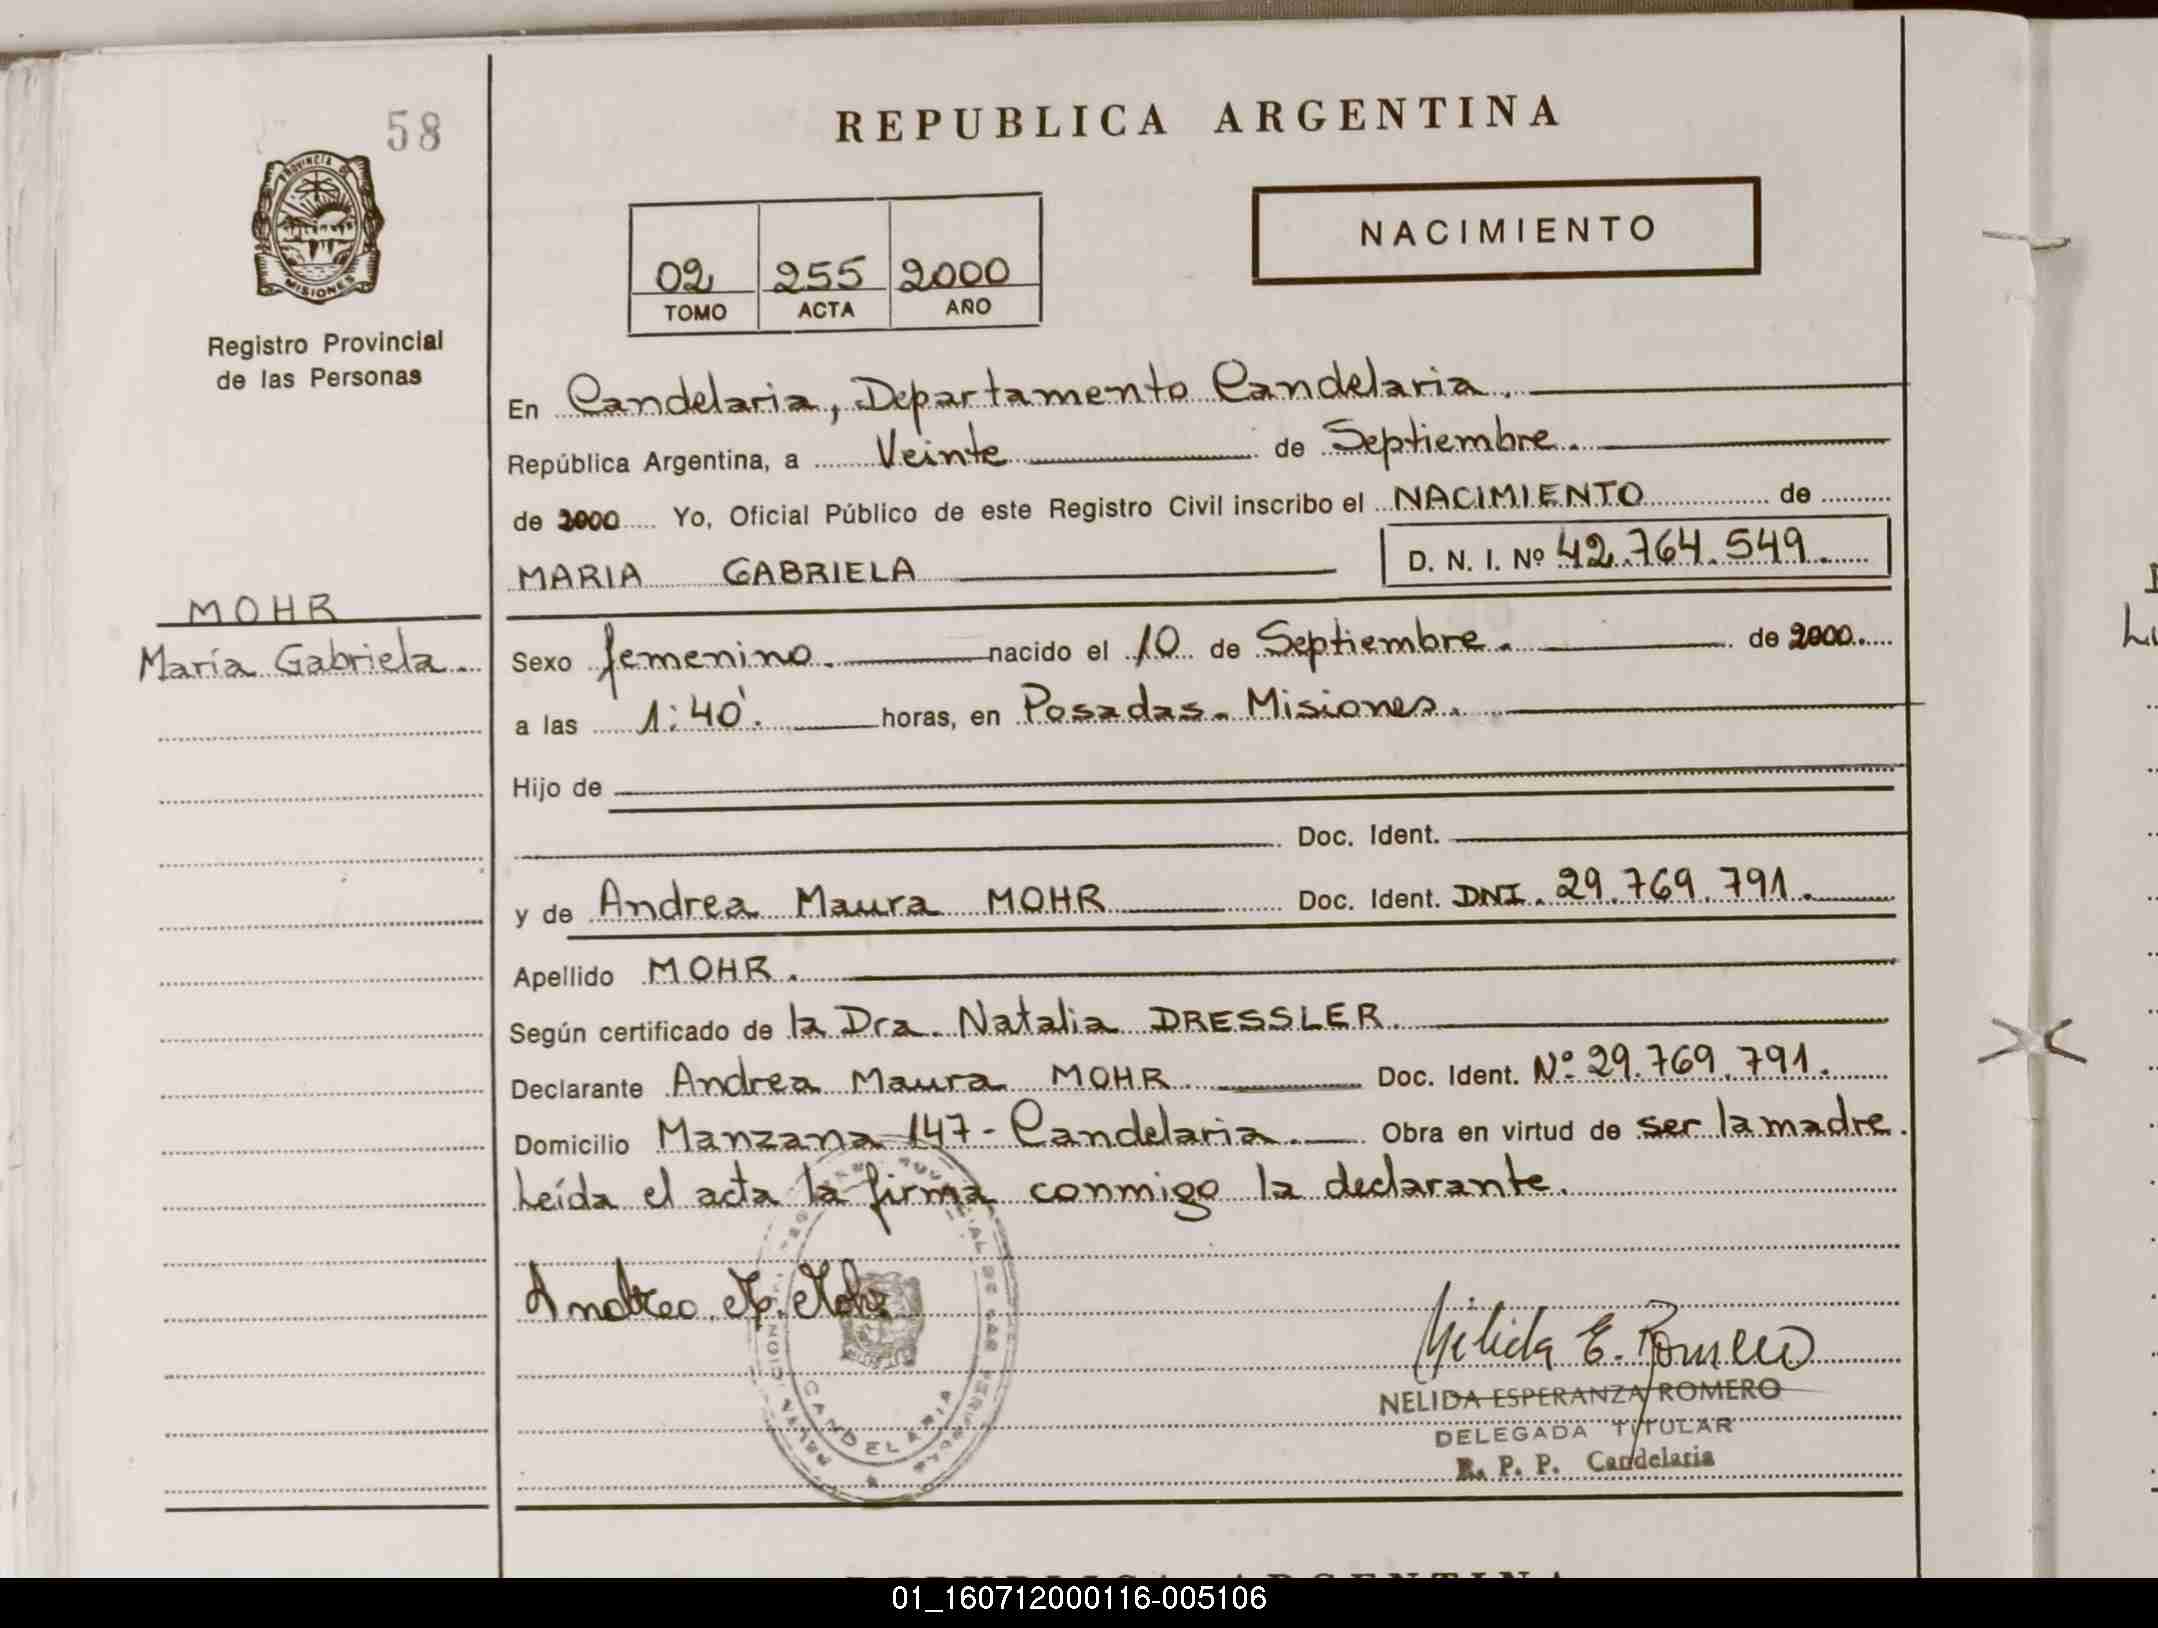 58
REPUBLICA ARGENTINA
PROVINCIA DE
MISIONES
NACIMIENTO
02 255 2000
TOMO ACTA AÑO
Registro Provincial
de las Personas
En Candelaria, Departamento Candelaria.
República Argentina, a Veinte de Septiembre.
de 2000 Yo, Oficial Público de este Registro Civil inscribo el NACIMIENTO de
MARIA GABRIELA D. N. I. Nº 42.764.549.
MOHR
María Gabriela.
Sexo femenino. nacido el 10 de Septiembre. de 2000.
a las 1:40'. horas, en Posadas - Misiones.
Hijo de
Doc. Ident.
y de Andrea Maura MOHR Doc. Ident. DNI. 29.769.791.
Apellido MOHR.
Según certificado de la Dra. Natalia DRESSLER.
Declarante Andrea Maura MOHR Doc. Ident. Nº 29.769.791.
Domicilio Manzana 147 - Candelaria. Obra en virtud de ser la madre.
Leída el acta la firma conmigo la declarante.
Andrea M. Mohr
CANDELARIA
Nélida E. Romero
NELIDA ESPERANZA ROMERO
DELEGADA TITULAR
R. P. P. Candelaria
REPUBLICA ARGENTINA
01_160712000116-005106